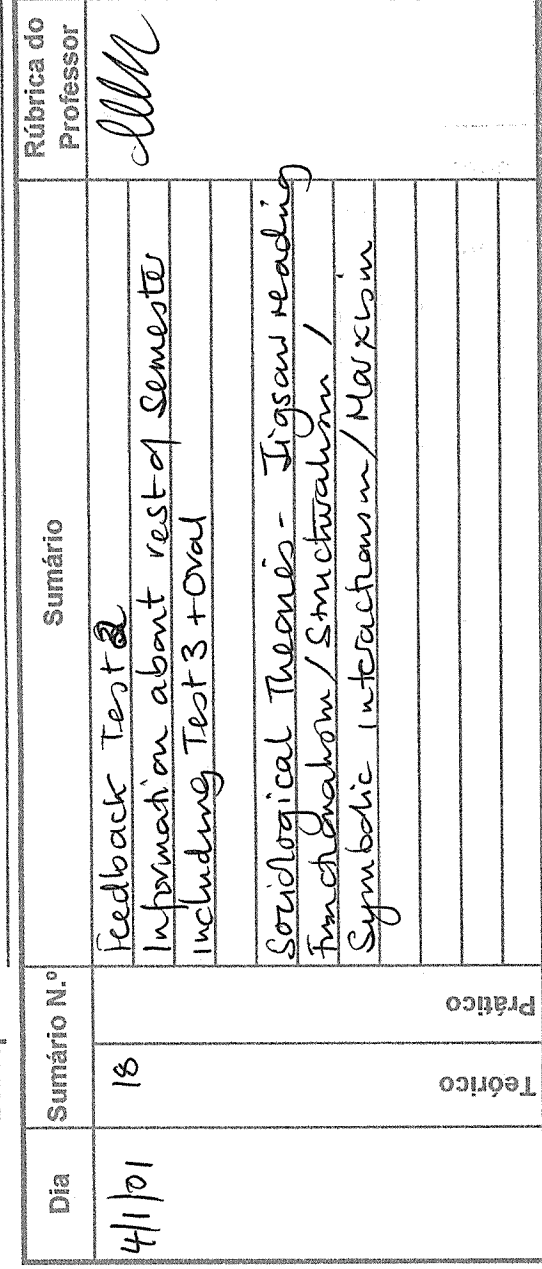 Dia
Sumário N.º
Sumário
Rúbrica do
Professor
4/1/01
18
Teórico
Prático
Feedback Test 2
Information about rest of semester
including Test 3 + Oral
Sociological Theories - Jigsaw reading
Functionalism / Structuralism /
Symbolic interactionism / Marxism